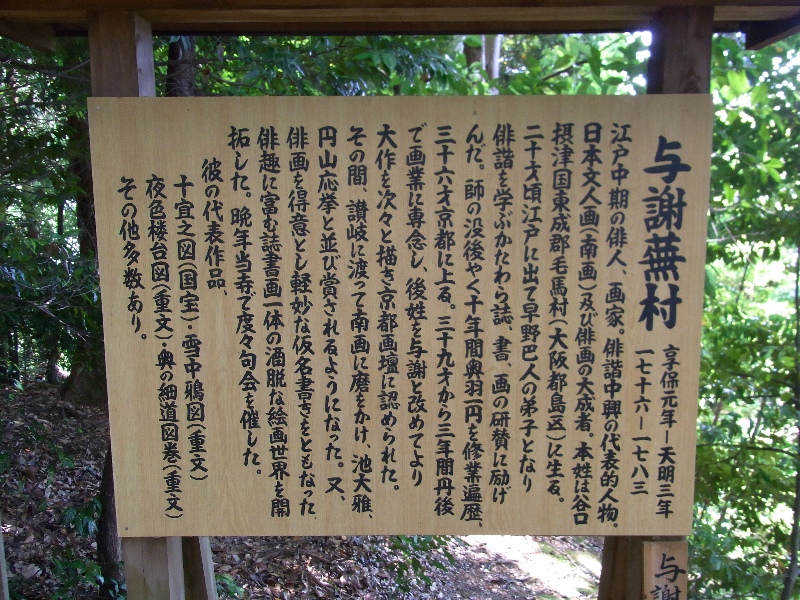 与謝蕪村
享保元年ー天明三年
一七十六ー一七八三
江戸中期の俳人、画家。俳諧中興の代表的人物。
日本文人画(南画)及び俳画の大成者。本姓は谷口
摂津国東成郡毛馬村(大阪都島区)に生る。
二十才頃江戸に出て早野巴人の弟子となり
俳諧を学ぶかたわら誌、書、画の研賛に励げ
んだ。師の没後やく十年間奥羽一円を修業遍歴、
三十六才京都に上る。三十九才から三年間丹後
で画業に専念し、後姓を与謝と改めてより
大作を次々と描き京都画壇に認められた。
その間、讃岐に渡って南画に磨をかけ、池大雅、
円山応挙と並び賞されるようになった。又、
俳画を得意とし軽妙な仮名書きをともなった
俳趣に富む誌書画一体の洒脱な絵画世界を開
拓した。晩年当寺で度々句会を催した。
彼の代表作品、
十宜之図(国宝)・雪中鴉図(重文)
夜色楼台図(重文)・奥の細道図巻(重文)
その他多数あり。
与謝